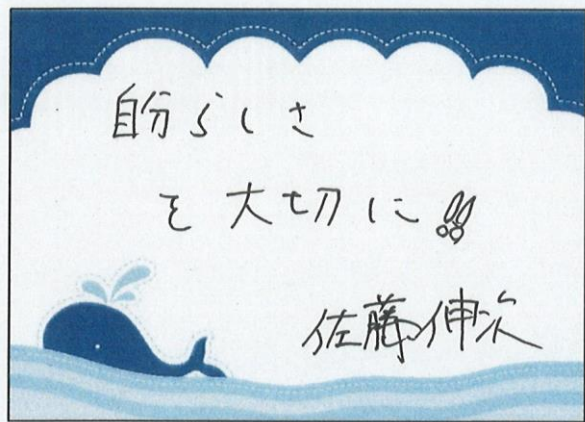 自分らしさ
を大切に!!
佐藤伸次